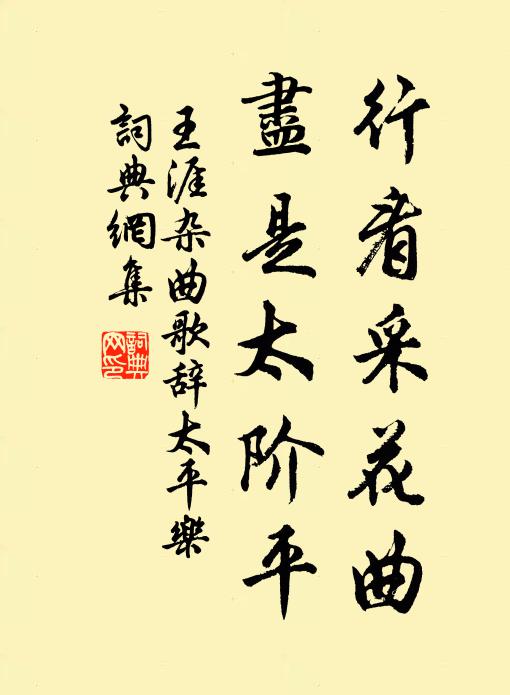 行看采花曲
盡是太阶平
王涯杂曲歌辞太平樂
詞典網集
詞典网印